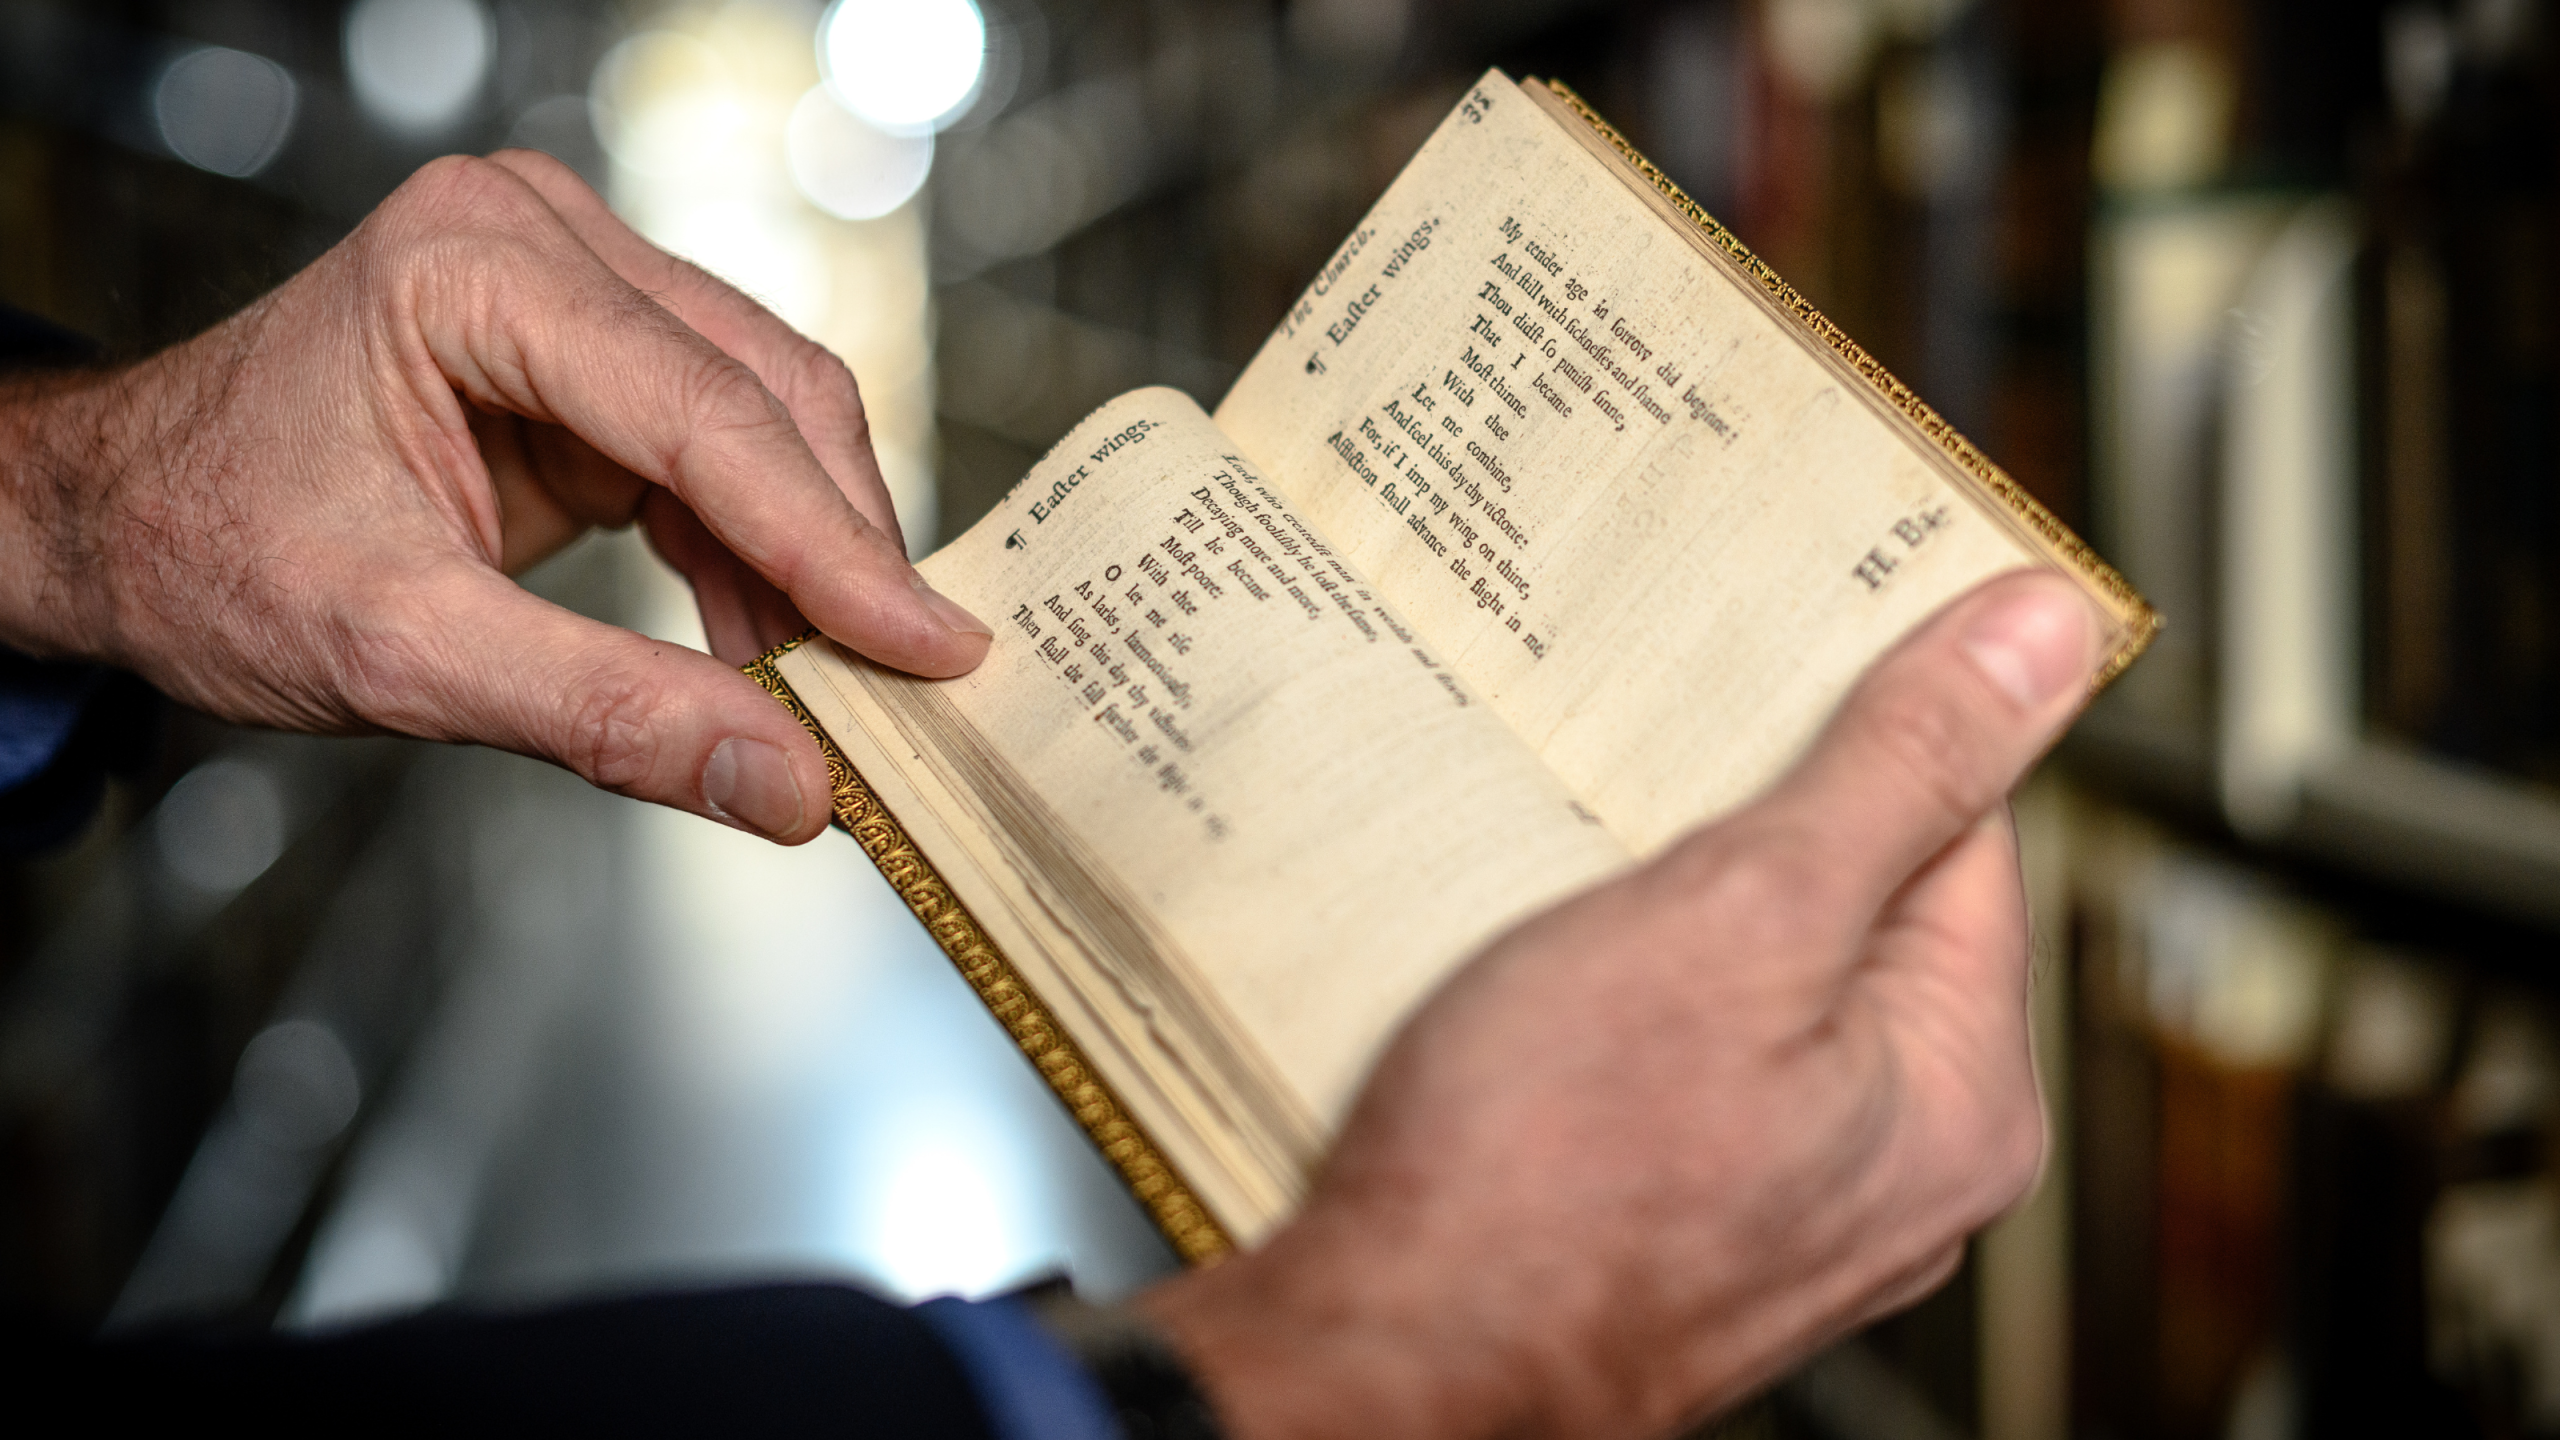 ¶ Easter wings.
Lord, who createdst man in wealth and store,
Though foolishly he lost the same,
Decaying more and more,
Till he became
Most poore:
With thee
O let me rise
As larks, harmoniously,
And sing this day thy victories:
Then shall the fall further the flight in me.
35
The Church.
¶ Eaſter wings.
My tender age in ſorrow did beginne:
And ſtill with ſickneſſes and ſhame
Thou didſt ſo puniſh ſinne,
That I became
Moſt thinne.
With thee
Let me combine,
And feel this day thy victorie:
For, if I imp my wing on thine,
Affliction ſhall advance the flight in me.
H.